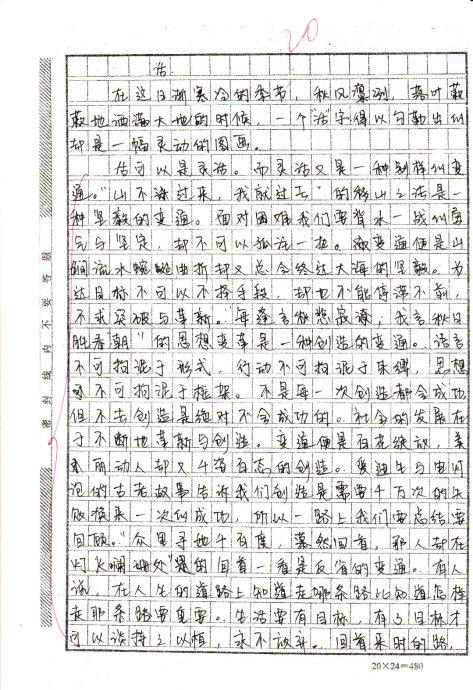 20
活
在这日渐寒冷的季节，秋风凛冽，落叶簌
簌地洒落大地的时候，一个“活”字得以勾勒出似
却是一幅灵动的图画。
活可以是灵活。而灵活又是一种别样似变
通。“山不涂过来，我就过去”的移山之法是一
种坚毅的变通。面对困难我们要背水一战似
气与坚定，却不可以孤注一掷。变通便是山
涧流水蜿蜒曲折却又总会终达大海的坚毅。为
达目标不可以不择手段，却也不能停滞不前，
不求突破与革新。“每逢言秋悲寂凉；我言秋日
胜春朝”的思想变革是一种创造的变通。语言
不可拘泥于形式，行动不可拘泥于束缚，思想
亦不可拘泥于框架。不是每一次创造都会成功
但不去创造是绝对不会成功的。社会的发展在
于不断地革新与创造。变通便是百花绽放，美
丽动人却又千姿百态的创造。爱迪生与电灯
泡的古老故事告诉我们创造是需要千万次的失
败换来一次似成功，所以一路上我们要总结要
回顾。“众里寻她千百度，蓦然回首，那人却在
灯火阑珊处”是的回首一看是反省的变通。有人
说，在人生的道路上知道走哪条路比知道怎样
走那条路要重要。生活要有目标，有了目标才
可以谈持之以恒，永不放弃。回首来时的路，
密封线内不要答题
20×24=480